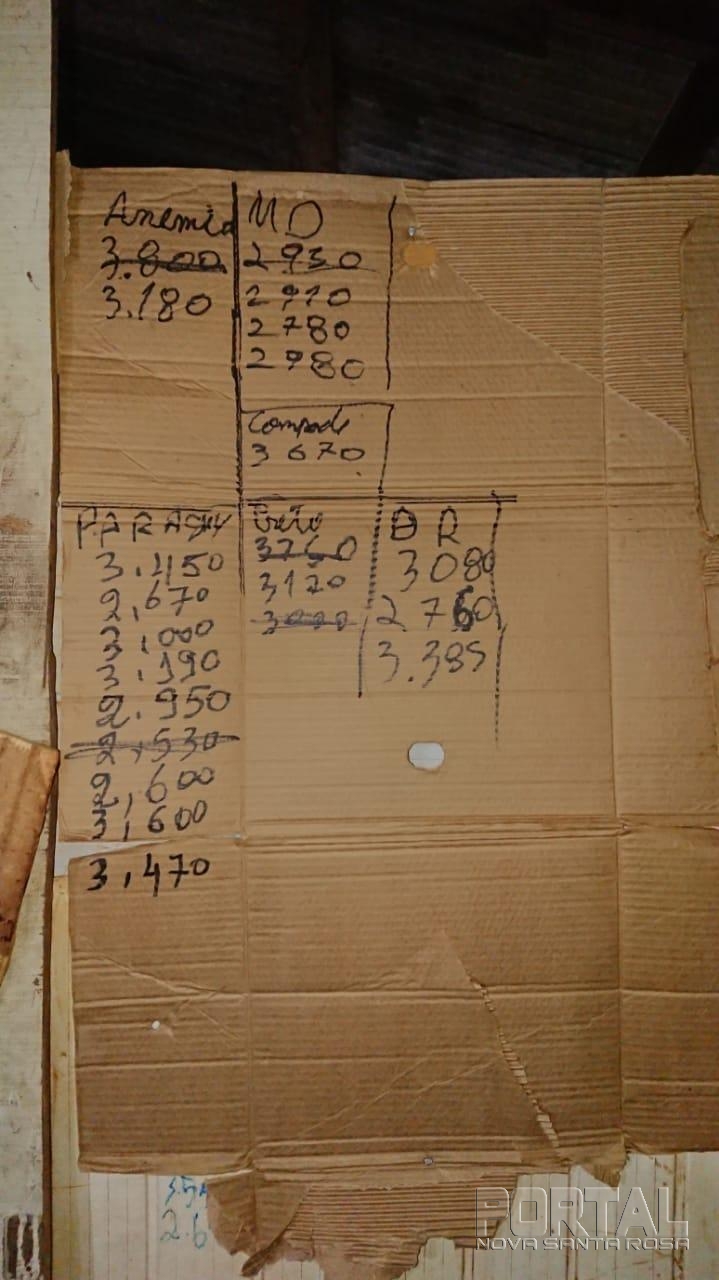 Anemia
3.800
3.180
MD
2930
2910
2780
2980
3670
3.450
2,670
3,000
3.190
2.950
2,530
2,600
3,600
3,470
3760
3170
3000
DR
3080
2760
3.385
2.6
PORTAL
NOVA SANTA ROSA